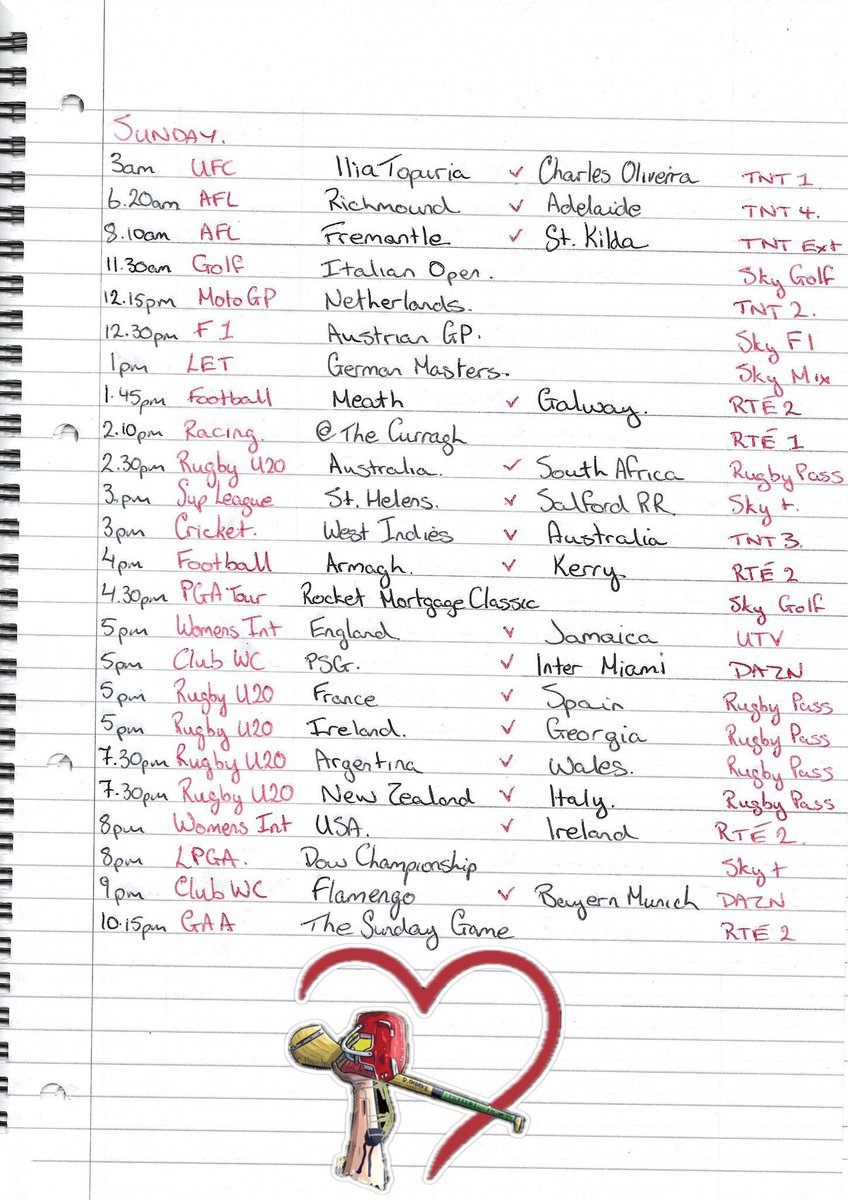 SUNDAY.
3am UFC Ilia Topuria v Charles Oliveira TNT 1
6.20am AFL Richmound v Adelaide TNT 4.
8.10am AFL Fremantle v St. Kilda TNT Ext
11.30am Golf Italian Open. Sky Golf
12.15pm Moto GP Netherlands. TNT 2.
12.30pm F1 Austrian GP. Sky F1
1pm LET German Masters. Sky Mix
1.45pm Football Meath v Galway. RTÉ 2
2.10pm Racing. @ The Curragh RTÉ 1
2.30pm Rugby U20 Australia. v South Africa Rugby Pass
3.pm Sup League St. Helens. v Salford RR Sky +.
3pm Cricket. West Indies v Australia TNT 3.
4pm Football Armagh. v Kerry RTÉ 2
4.30pm PGA Tour Rocket Mortgage Classic Sky Golf
5pm Womens Int England v Jamaica UTV
5pm Club WC PSG. v Inter Miami DAZN
5pm Rugby U20 France v Spain Rugby Pass
5pm Rugby U20 Ireland. v Georgia Rugby Pass
7.30pm Rugby U20 Argentina v Wales. Rugby Pass
7.30pm Rugby U20 New Zealand v Italy. Rugby Pass
8pm Womens Int USA. v Ireland RTÉ 2.
8pm LPGA. Dow Championship Sky +
9pm Club WC Flamengo v Bayern Munich DAZN
10.15pm GAA The Sunday Game RTÉ 2